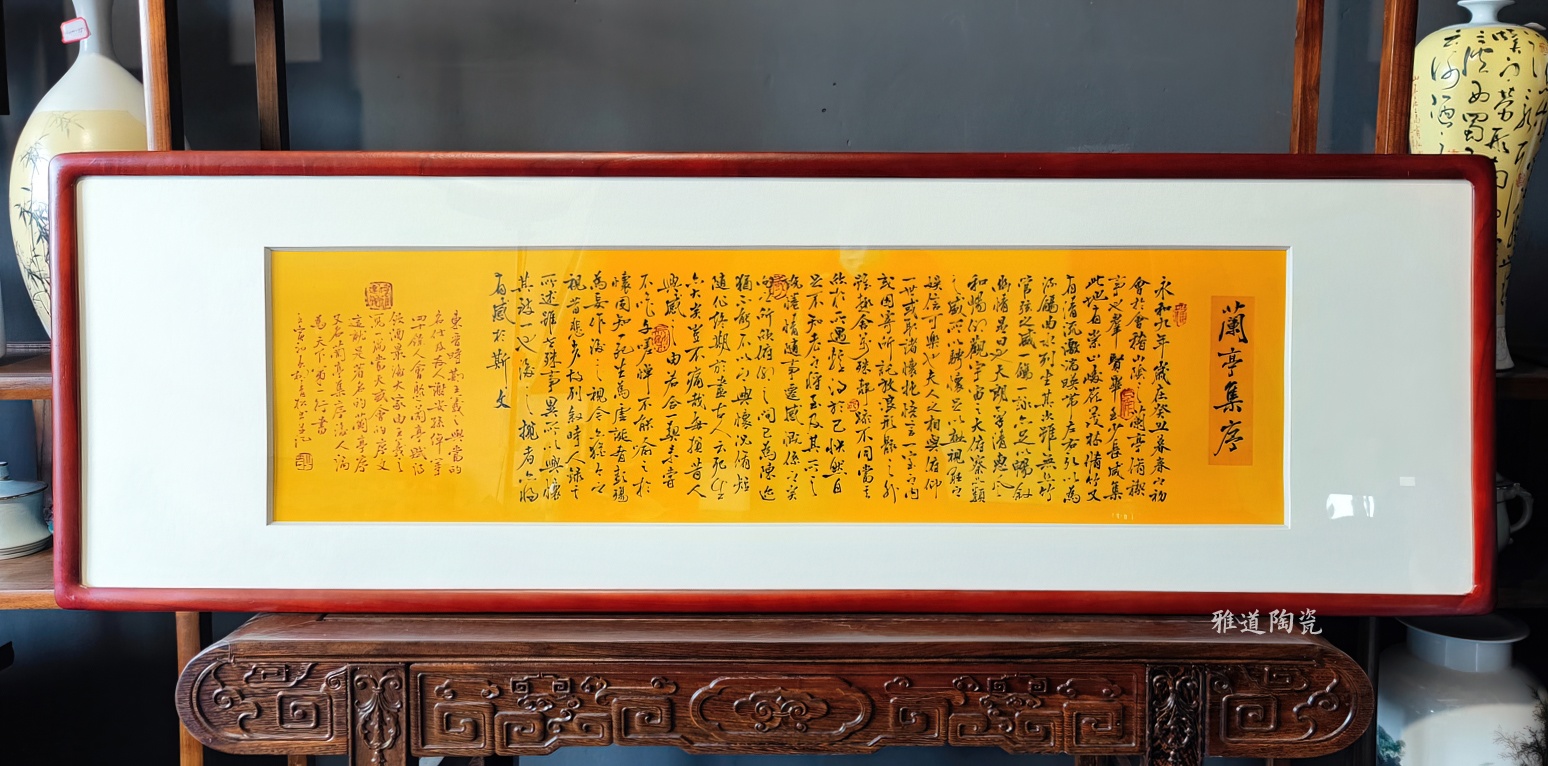 蘭亭集序
永和九年歲在癸丑暮春之初
會於會稽山陰之蘭亭脩禊
事也羣賢畢至少長咸集
此地有崇山峻嶺茂林脩竹又
有清流激湍暎帶左右引以為
流觴曲水列坐其次雖無絲竹
管弦之盛一觴一詠亦足以暢敘
幽情是日也天朗氣清惠風
和暢仰觀宇宙之大俯察品類
之盛所以騁懷足以極視聽之
娛信可樂也夫人之相與俯仰
一世或取諸懷抱悟言一室之內
或因寄所託放浪形骸之外
雖趣舍萬殊靜躁不同當其
欣於所遇暫得於己快然自
足不知老之將至及其所之
既倦情隨事遷感慨係之矣
向之所欣俛仰之間已為陳迹
猶不能不以之興懷況脩短
隨化終期於盡古人云死生
亦大矣豈不痛哉每攬昔人
興感之由若合一契未嘗
不臨文嗟悼不能喻之於
懷固知一死生為虛誕齊彭殤
為妄作後之視今亦猶今之
視昔悲夫故列敘時人錄其
所述雖世殊事異所以興懷
其致一也後之攬者亦將
有感於斯文
東晉時王羲之與當時
名仕及友人謝安孫倬等
四十餘人會於蘭亭賦詩
飲酒大家由王羲之
寫一篇當天盛會的序文
這就是著名的蘭亭序
又名蘭亭集序後人稱
為天下第一行書
雅道陶瓷